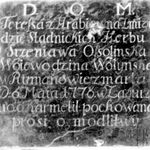 D O M
Teresa z Hrabiow na Żmigro
dzie Stadnickich Herbu
Szreniawa Ossolinska
Woiewodzina Wołynska
w Rymanowie zmarła
d 6 Maia 1776 w
u Karmelit pochowana
prosi o modlitwy